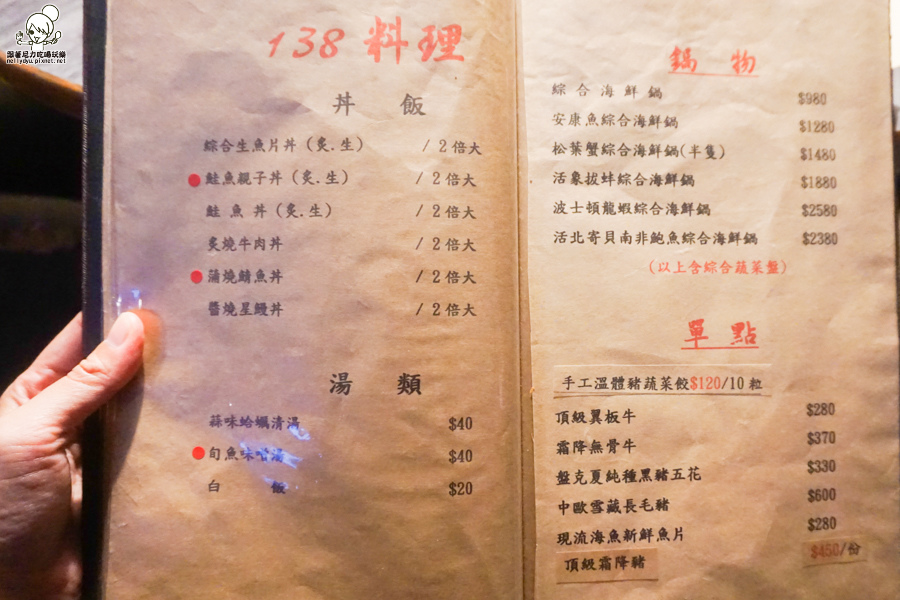 跟著尼力吃喝玩樂
nellydyu.pixnet.net
138 料理
丼 飯
綜合生魚片丼(炙.生) / 2倍大
鮭魚親子丼(炙.生) / 2倍大
鮭魚丼(炙.生) / 2倍大
炙燒牛肉丼 / 2倍大
蒲燒鯖魚丼 / 2倍大
醬燒星鰻丼 / 2倍大
湯 類
蒜味蛤蠣清湯 $40
旬魚味噌湯 $40
白飯 $20
鍋 物
綜合海鮮鍋 $980
安康魚綜合海鮮鍋 $1280
松葉蟹綜合海鮮鍋(半隻) $1480
活象拔蚌綜合海鮮鍋 $1880
波士頓龍蝦綜合海鮮鍋 $2580
活北寄貝南非鮑魚綜合海鮮鍋 $2380
(以上含綜合蔬菜盤)
單 點
手工溫體豬蔬菜餃$120/10粒
頂級翼板牛 $280
霜降無骨牛 $370
盤克夏純種黑豬五花 $330
中歐雪藏長毛豬 $600
現流海魚新鮮魚片 $280
頂級霜降豬 $450/份